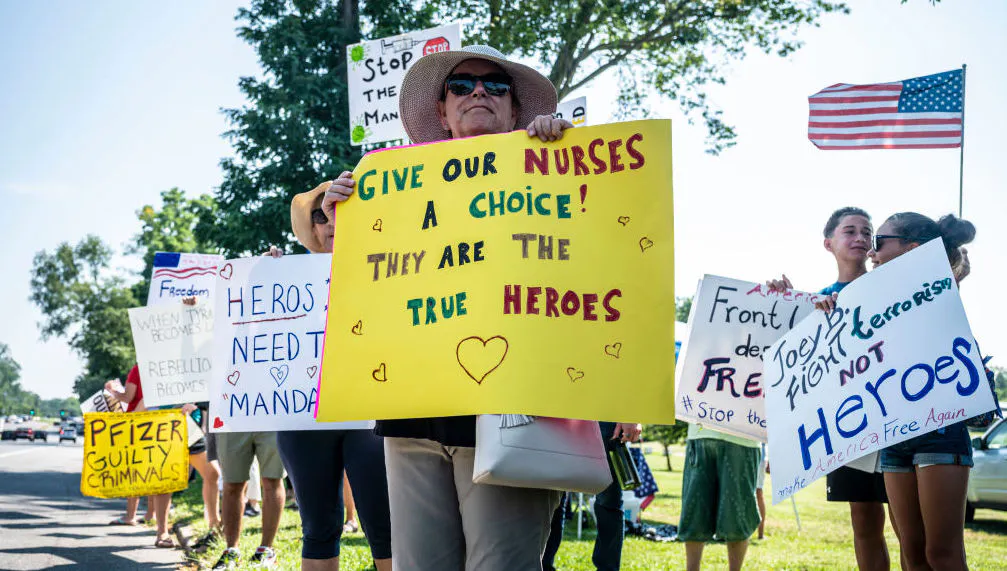 STOP
STOP
THE
MAN
GIVE OUR NURSES
A CHOICE!
THEY ARE THE
TRUE HEROES
Freedom
WHEN TYRA
BECOMES
REBELLIO
BECOMES
HEROS
NEED T
"MANDA
PFIZER
GUILTY
CRIMINALS
America
Front
FRE
# STOP the
Joey B.
FIGHT terrorism
NOT
Heroes
make America Free Again